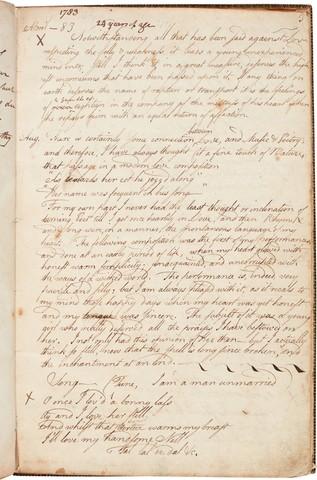 1783 3
April - 83 24 years of age
X Notwithstanding all that has been said against Love
respecting the folly & weakness it leads a young unexperienced
mind into; still I think it in a great measure deserves the high-
est encomiums that have been passed upon it. If any thing on
earth deserves the name of rapture or transport it is the feelings
of green eighteen in the company of the mistress of his heart when
she repays him with an equal return of affection.
Aug. There is certainly some connection between Love, and Music & Poetry;
and therefore, I have always thought it a fine touch of Nature,
that passage in a modern love composition
"As towards her cot he jogg'd along
"Her name was frequent in his song—
For my own part I never had the least thought or inclination of
turning Poet till I got once heartily in Love, and then Rhyme &
Song were, in a manner, the spontaneous language of my
heart. The following composition was the first of my performances,
and done at an early period of life, when my heart glowed with
honest warm simplicity; unacquainted, and uncorrupted with
the ways of a wicked world. The performance is, indeed, very
puerile and silly; but I am always pleased with it, as it recals to
my mind those happy days when my heart was yet honest
and my tongue was sincere. The subject of it was a young
girl who really deserved all the praises I have bestowed on
her. I not only had this opinion of her then — but I actually
think so still, now that the spell is long since broken, and
the inchantment at an end.
Song — (Tune, I am a man unmarried
X O once I lov'd a bonny lass
Ay and I love her still
And whilst that virtue warms my breast
I'll love my handsome Nell
Fal lal de dal &c.